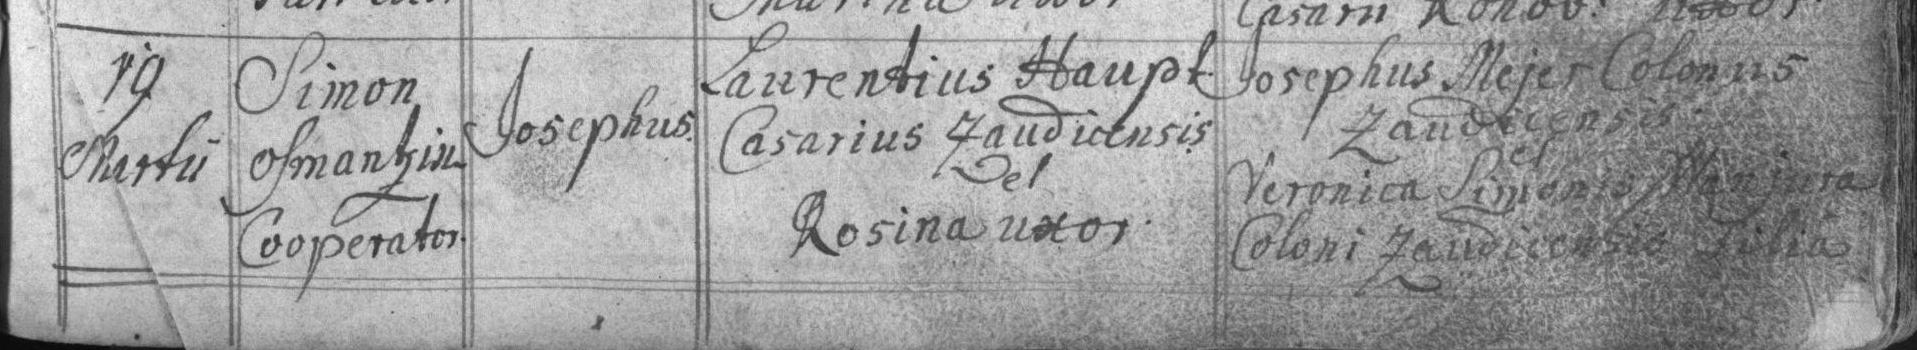 Casarii
19
Martii
Simon
Osmantzin
Cooperator.
Josephus.
Laurentius Haupt
Casarius Zaudicensis
et
Rosina uxor.
Josephus Mejer Colonus
Zaudicensis.
et
Veronica Simonis Wanjura
Coloni Zaudicensis Filia